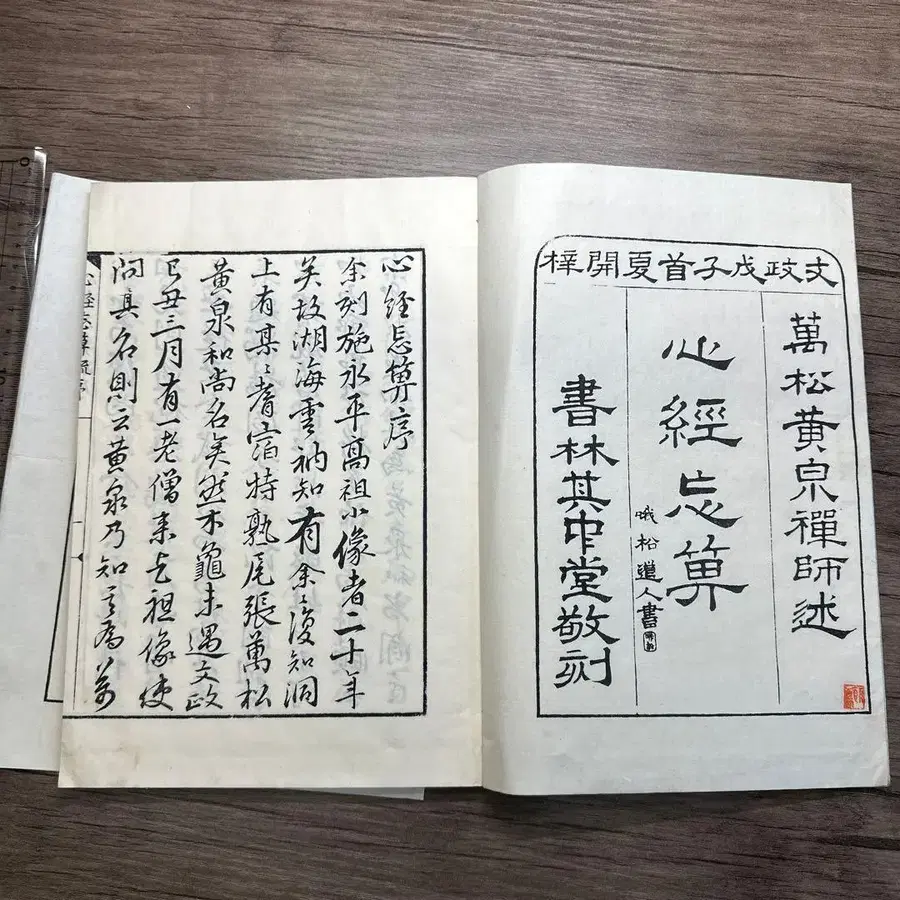 文政戊子首夏開梓
萬松黄泉禪師述
心經忘算
哦松道人書
書林其中堂敬刻
心經忘算序
余刻施永平高祖小像者二十年
矣故湖海雲衲知有余〻復知洞
上有某〻耆宿特熟尾張萬松
黄泉和尚名矣然木龜未遇文政
己丑三月有一老僧来乞祖像使
問其名則云黄泉乃知高